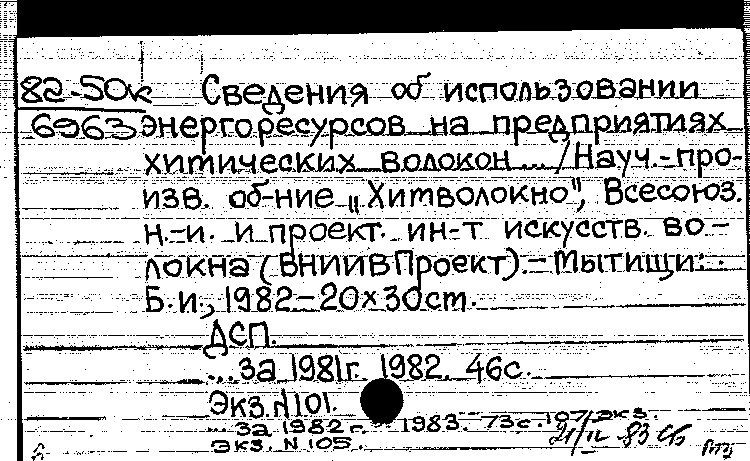 82-50к Сведения об использовании
6963 энергоресурсов на предприятиях
химических волокон .../Науч.-про-
изв. об-ние „Химволокно", Всесоюз.
н.-и. и проект. ин-т искусств. во-
локна (ВНИИВПроект).-Мытищи:
Б.и., 1982-20х30см.
ДСП.
...За 1981г. 1982. 46с.
Экз.N101.
...За 1982г. 1983. 73с. 107 экз.
Экз. N 105. 21/IV 83